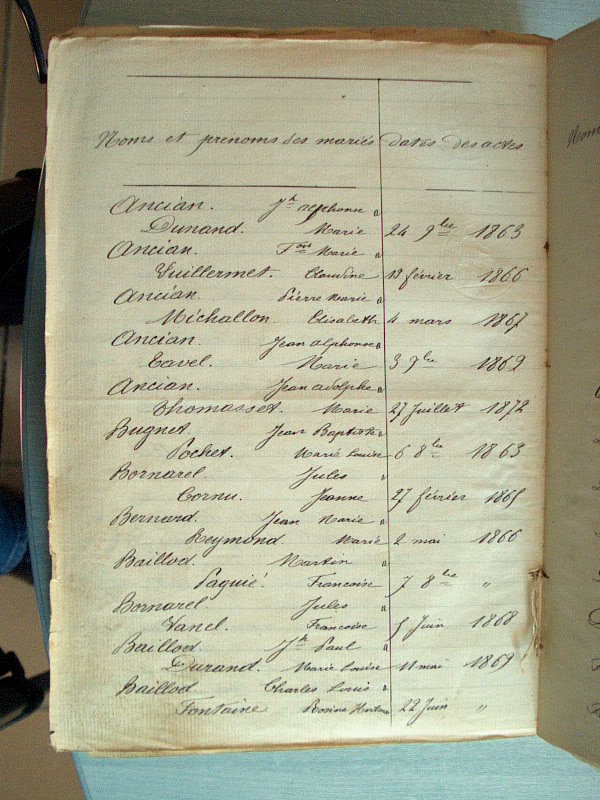 Noms et prénoms des mariés dates des actes
Ancian. Jh alphonse "
Dunand. Marie 24 9bre 1863
Ancian. Fois Marie "
Vuillermet. Claudine 18 février 1866
Ancian. Pierre Marie "
Michallon. Elisabeth 4 mars 1867
Ancian. Jean alphonse "
Eavel. Marie 3 9bre 1869
Ancian. Jean adolphe "
Thomasset. Marie 27 Juillet 1872
Bugnet. Jean Baptiste "
Pochet. Marie Louise 6 8bre 1863
Bornarel. Jules "
Cornu. Jeanne 27 février 1865
Bernard. Jean Marie "
Reymond. Marie 2 mai 1866
Baillod. Martin "
Paquié. Francoise 7 8bre "
Bornarel. Jules "
Vanel. Francoise 5 Juin 1868
Baillod. Jh Paul "
Durand. Marie Louise 11 mai 1869
Baillod. Charles Louis "
Fontaine Rosina 22 Juin "